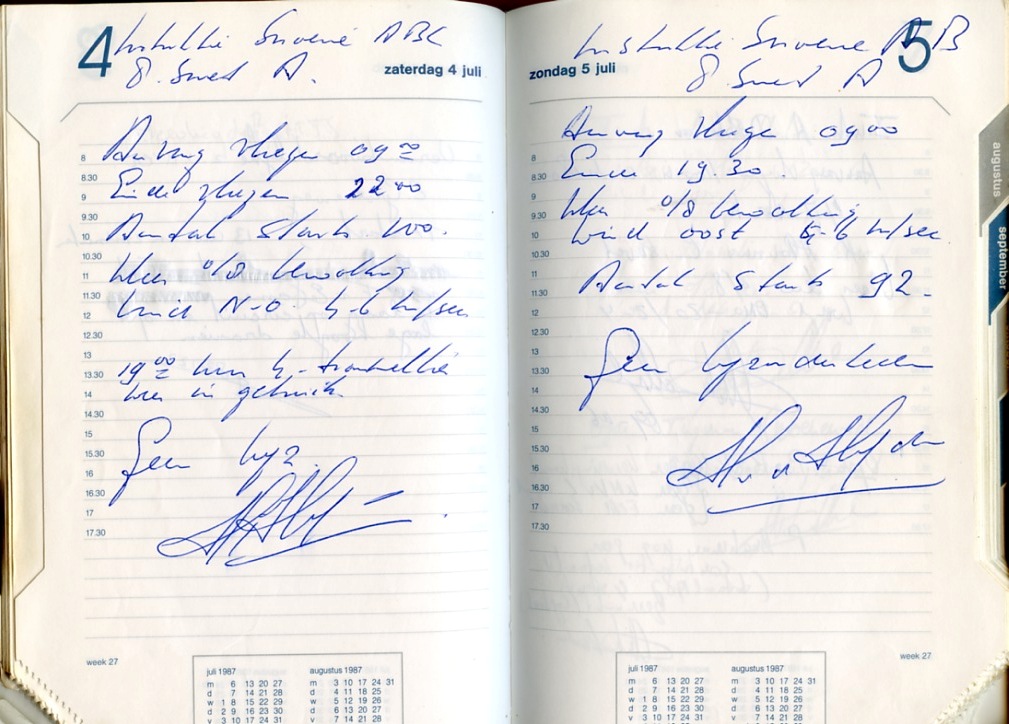 4
Instructie Service ABC
zaterdag 4 juli
Aanvang vliegen 09 00
Einde vliegen 22 00
Aantal Starts 100.
Weer 0/8 bewolking
Wind N-O. 4-6 m/sec
19 00 uur
was in gebruik
Geen byz.
8
8.30
9
9.30
10
10.30
11
11.30
12
12.30
13
13.30
14
14.30
15
15.30
16
16.30
17
17.30
week 27
juli 1987
m 6 13 20 27
d 7 14 21 28
w 1 8 15 22 29
d 2 9 16 23 30
v 3 10 17 24 31
augustus 1987
m 3 10 17 24 31
d 4 11 18 25
w 5 12 19 26
d 6 13 20 27
v 7 14 21 28
5
zondag 5 juli
Aanvang vliegen 09 00
Einde 19.30.
Weer 0/8 bewolking
wind oost m/sec
Aantal Starts 92.
Geen byzonderheden
8
8.30
9
9.30
10
10.30
11
11.30
12
12.30
13
13.30
14
14.30
15
15.30
16
16.30
17
17.30
week 27
juli 1987
m 6 13 20 27
d 7 14 21 28
w 1 8 15 22 29
d 2 9 16 23 30
v 3 10 17 24 31
augustus 1987
m 3 10 17 24 31
d 4 11 18 25
w 5 12 19 26
d 6 13 20 27
v 7 14 21 28
augustus
september